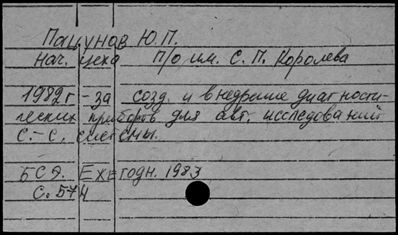 Пацунов Ю.П.
нач. цеха п/о им. С. П. Королева
1982г - за созд. и внедрение диагности-
ческих приборов для авт. исследований
с.-с. системы.
БСЭ. Ежегодн. 1983
с. 574